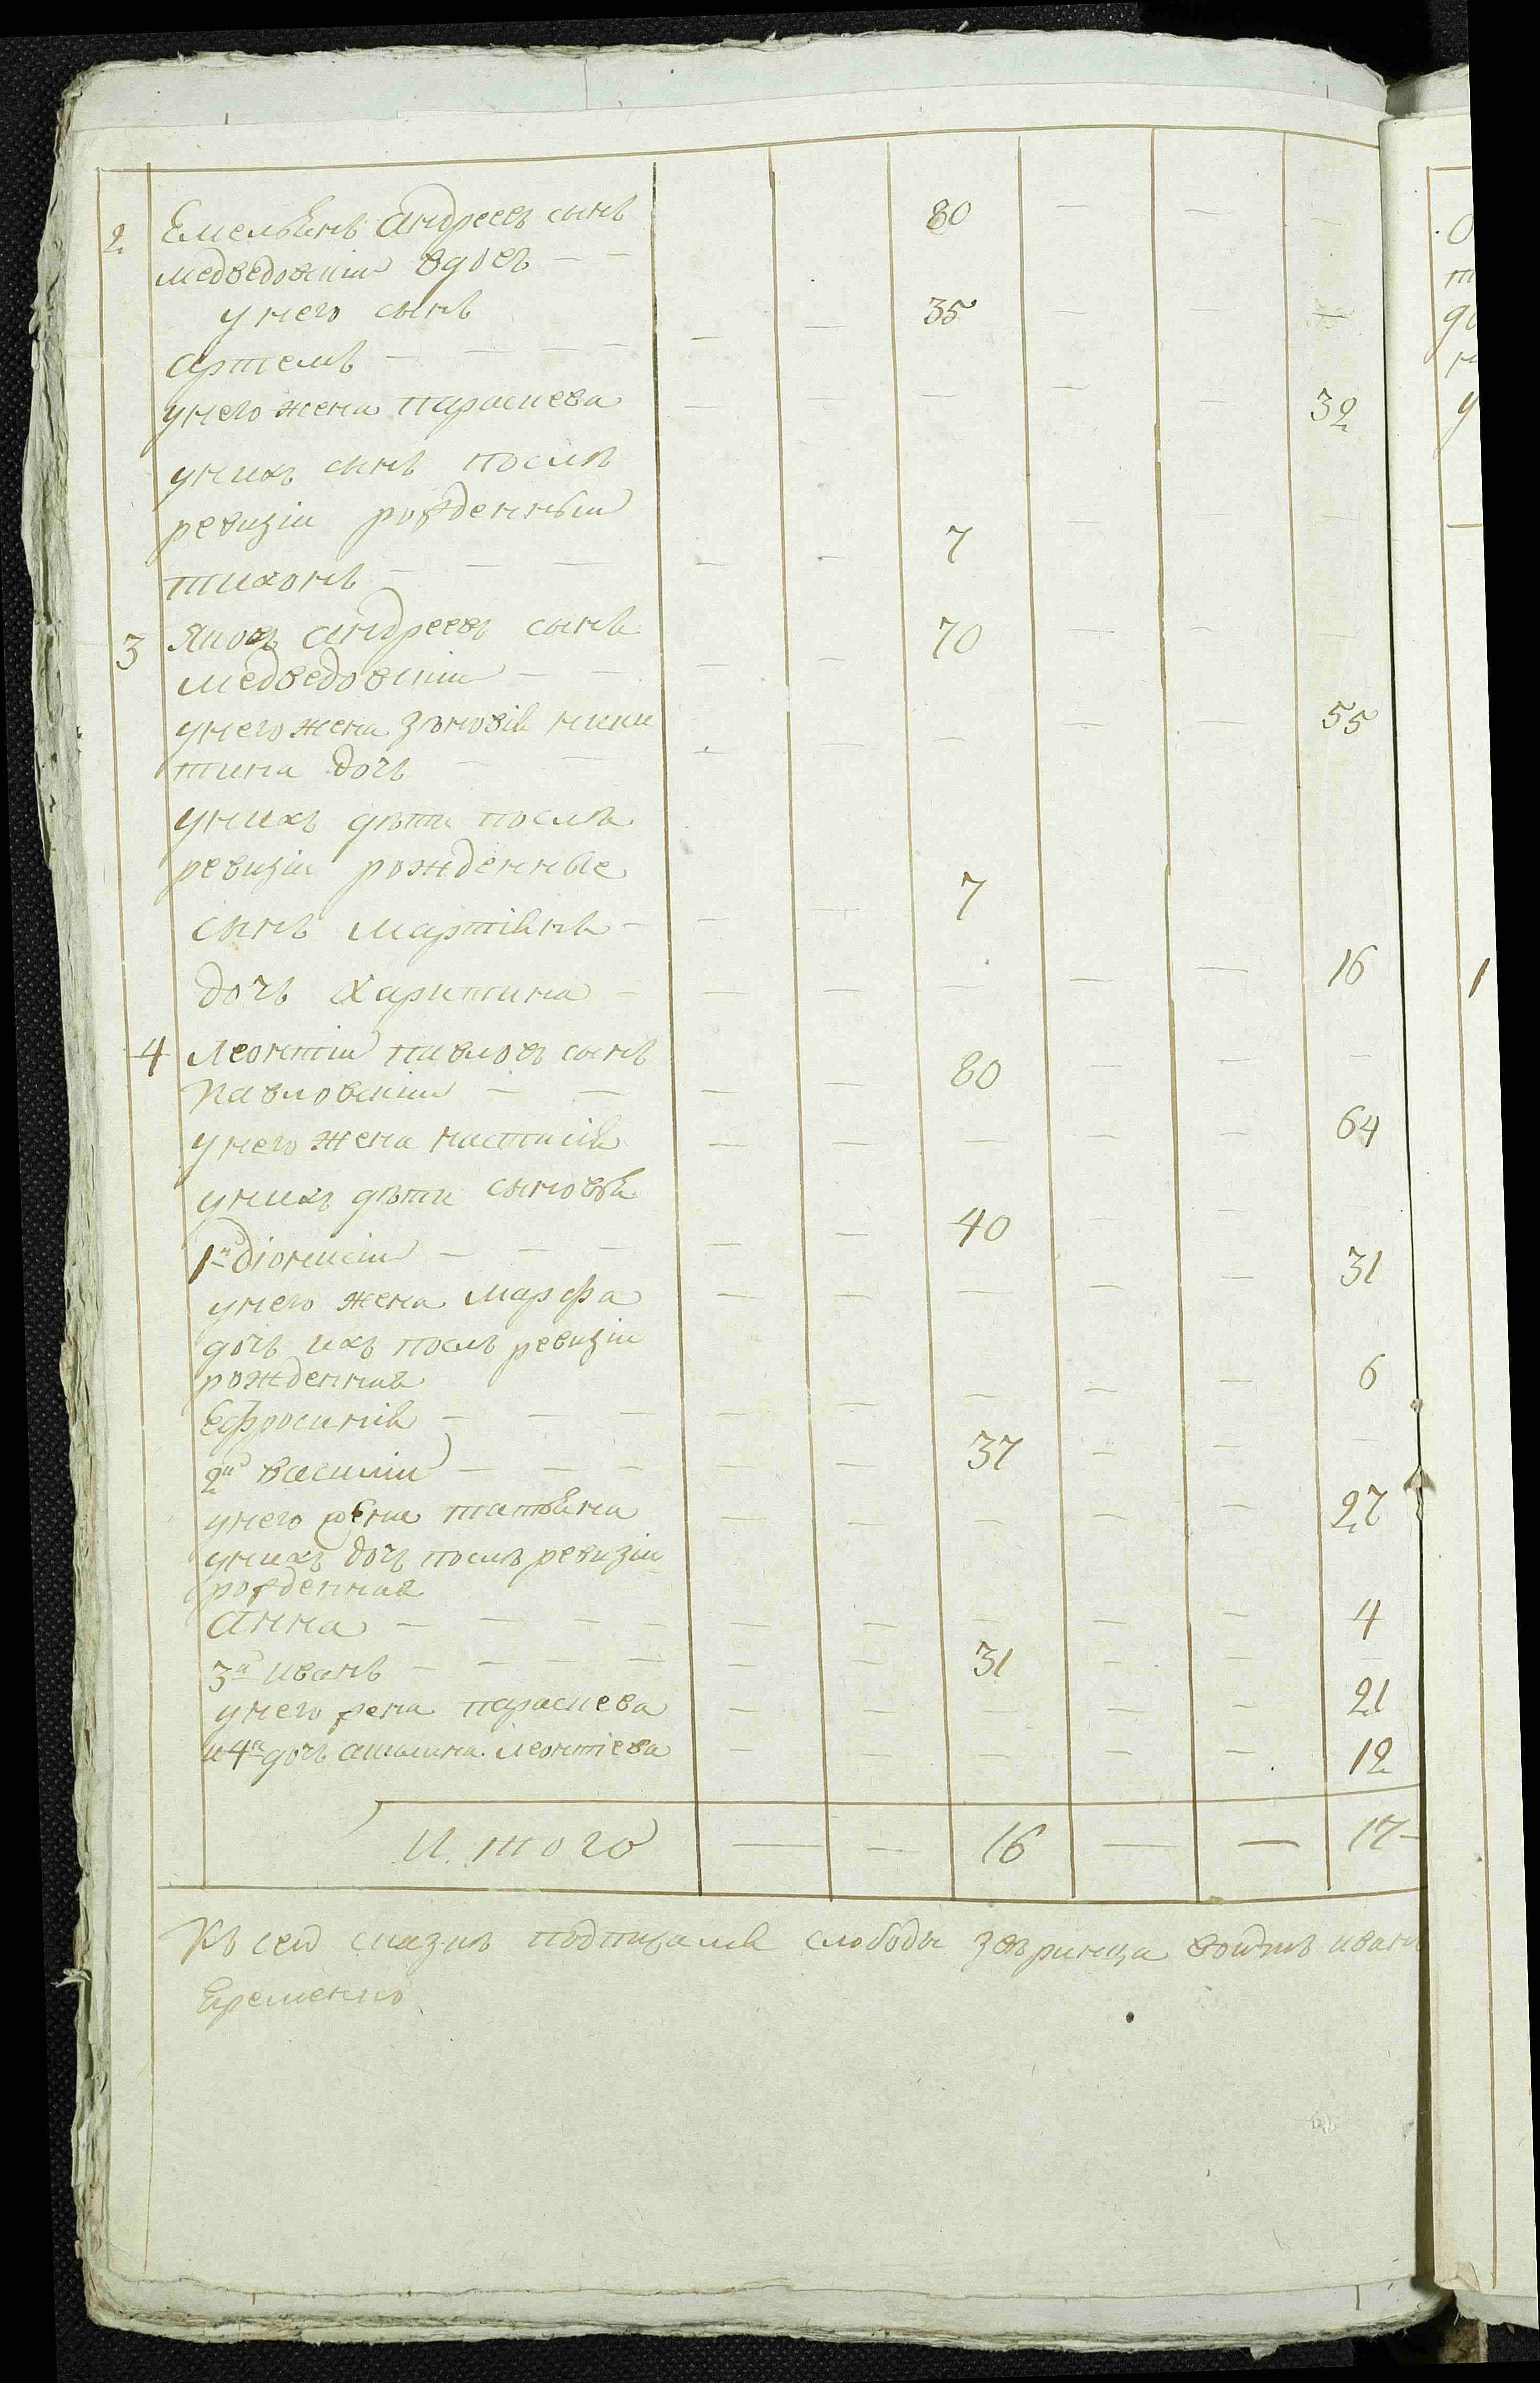 2 Емельянъ Андреевъ сынъ 80 — — —
медведовскiи вдовъ — —
у него сынъ
артемъ — — — — — — 35 — — —
унего жена параскева — — — — — 32
унихъ сынъ послѣ
ревизiи рожденныи
тихонъ — — — — — 7 — — —
3 Яковъ андреевъ сынъ 70 — — —
медведовскiи — — — —
унего жена зѣновiя ники 55
тина дочь — — — — — — —
унихъ дѣти послѣ
ревизiи рожденные
сынъ мартiянъ — — — 7
дочь харитина — — — — — — 16
4 Леонтiи павловъ сынъ
Павловскiи — — — — 80 — — —
унего жена настасiя — — — — — 64
унихъ дѣти сыновья
1й дiонисiи — — — — — 40 — — —
унего жена марфа — — — — — 31
дочь ихъ послѣ ревизiи
рожденная
Ефросинiя — — — — — — — — 6
2й василiи — — — — — 37 — — —
унего жена татьяна — — — — — 27
унихъ дочь послѣ ревизiи
рожденная
анна — — — — — — — — — 4
3й иванъ — — — — — — 31 — — —
унего жена параскева — — — — — 21
и 4я дочь акилина леонтiева — — — — — 12
Итого — — 16 — — 17
Къ сей сказкѣ подписался слободы звѣринца войтъ иванъ
Еременко